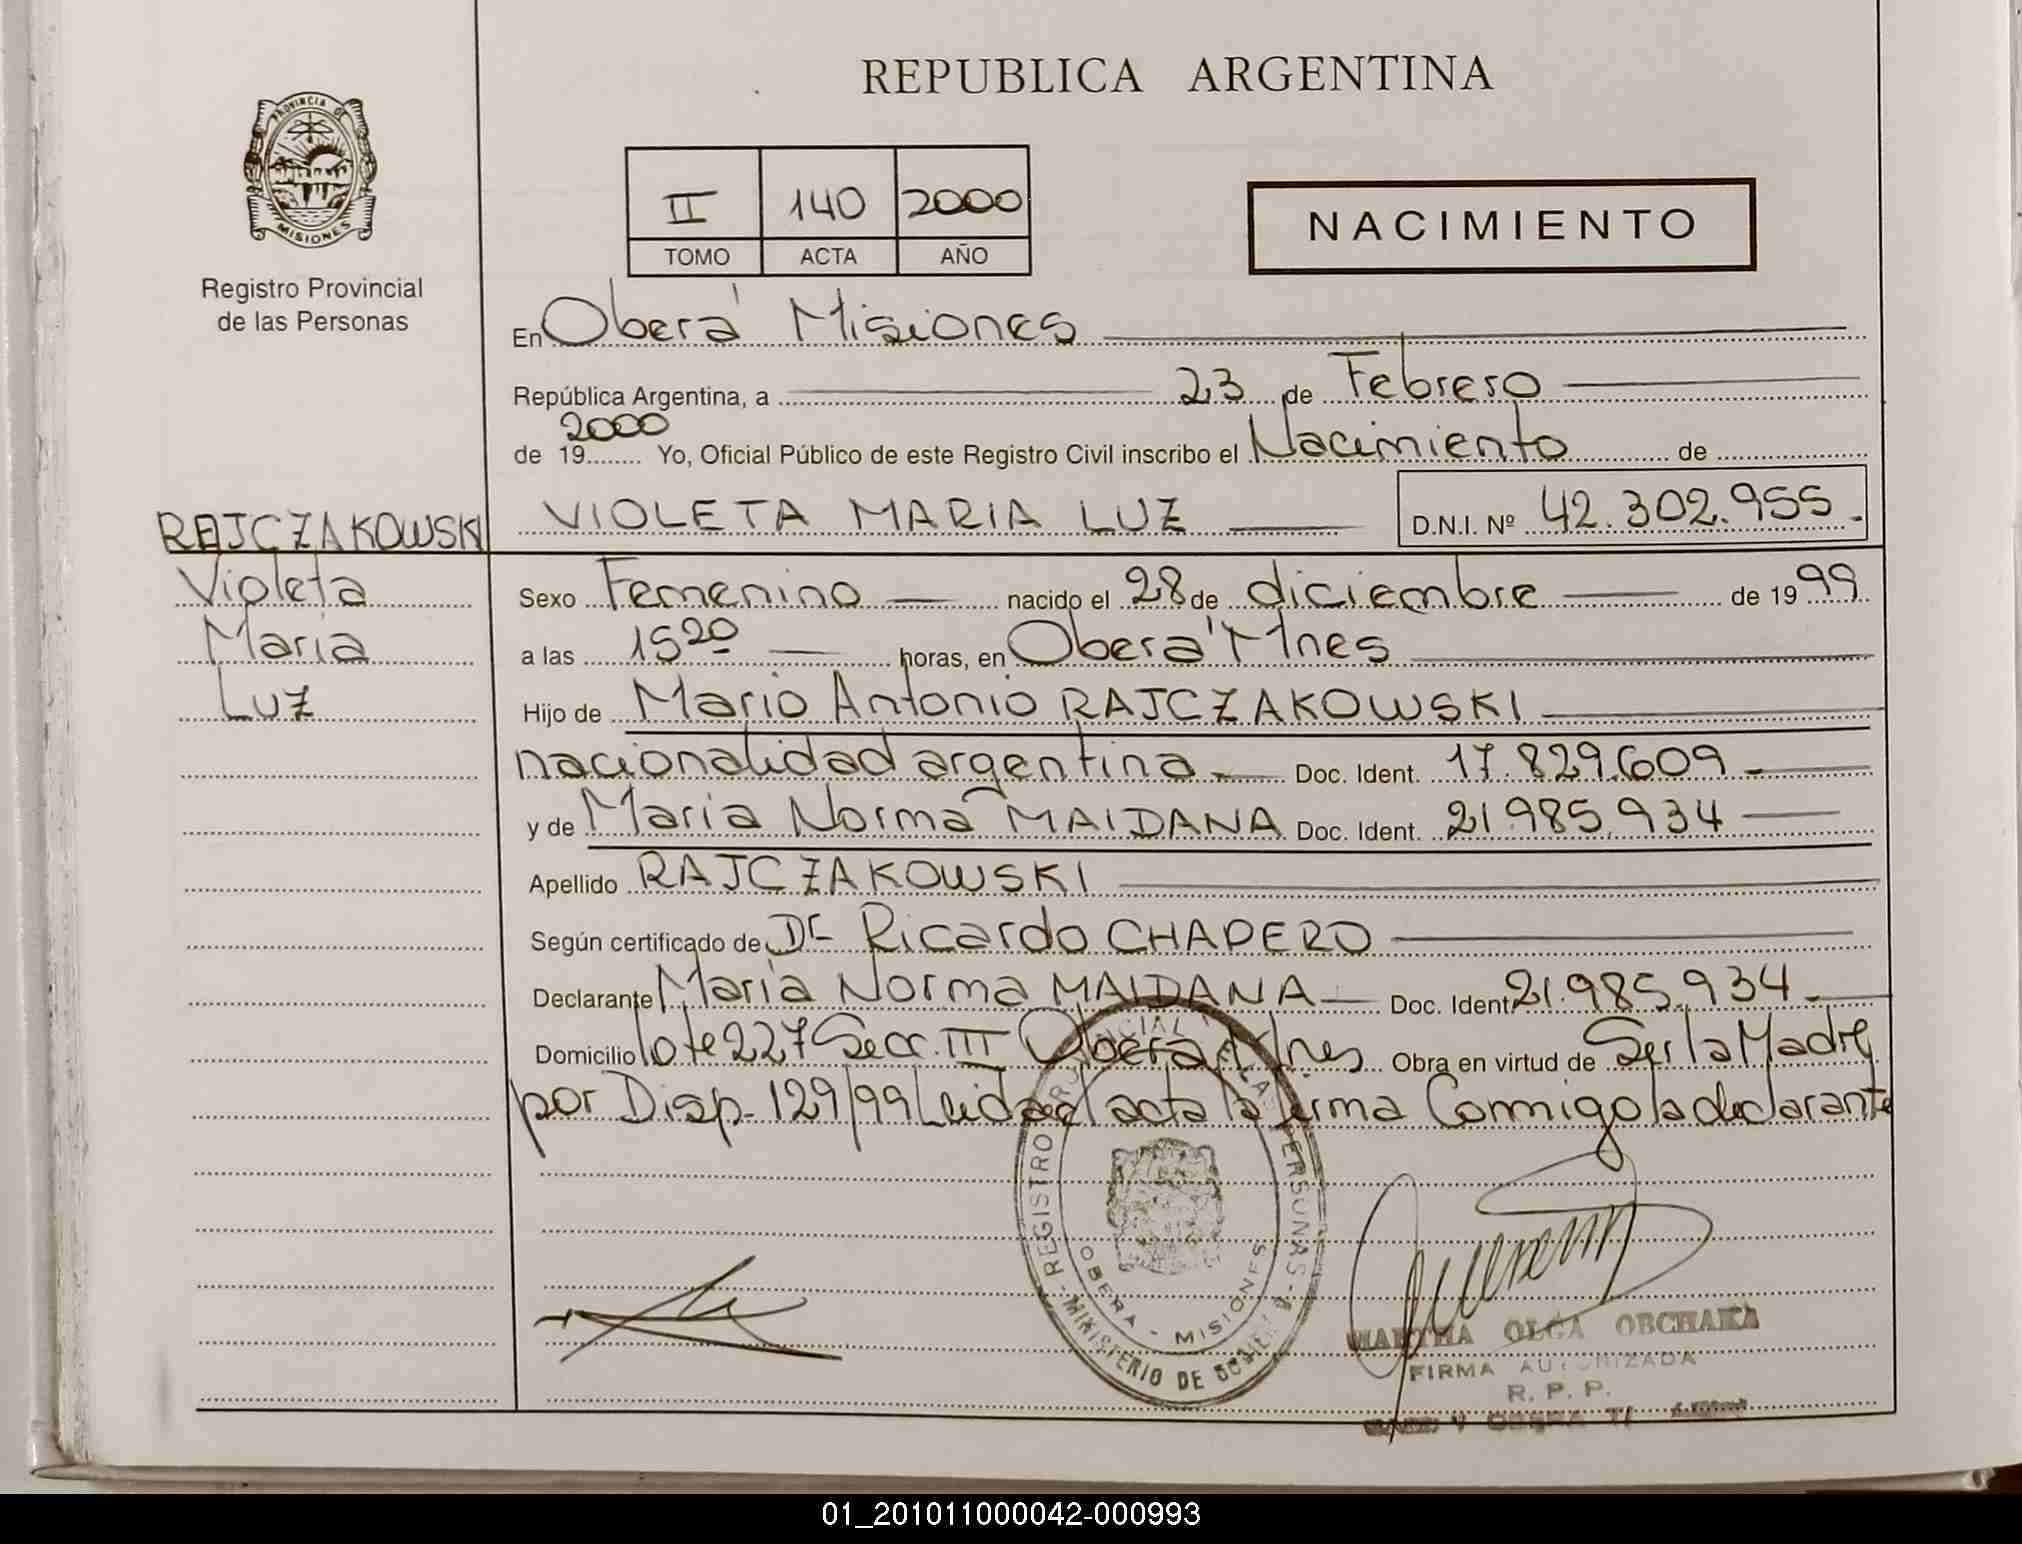 REPUBLICA ARGENTINA
PROVINCIA DE
MISIONES
Registro Provincial
de las Personas
II 140 2000
TOMO ACTA AÑO
NACIMIENTO
En Oberá Misiones
República Argentina, a 23 de Febrero
2000
de 19 Yo, Oficial Público de este Registro Civil inscribo el Nacimiento de
RAJCZAKOWSKI
VIOLETA MARIA LUZ D.N.I. Nº 42.302.955.
Violeta
Maria
Luz
Sexo Femenino nacido el 28 de diciembre de 1999
a las 15 20 horas, en Oberá Mnes
Hijo de Mario Antonio RAJCZAKOWSKI
nacionalidad argentina Doc. Ident. 17.829.609
y de Maria Norma MAIDANA Doc. Ident. 21.985.934
Apellido RAJCZAKOWSKI
Según certificado de Dr Ricardo CHAPERO
Declarante Maria Norma MAIDANA Doc. Ident 21.985.934
Domicilio lote 227 Secc. III Oberá Mnes Obra en virtud de Ser la Madre
por Disp. 129/99 Leida el acta la firma Conmigo la declarante
REGISTRO PROVINCIAL DE LAS PERSONAS
OBERA - MISIONES
MINISTERIO DE
MARTHA OLGA OBCHAKA
FIRMA AUTORIZADA
R. P. P.
OBERA
01_201011000042-000993